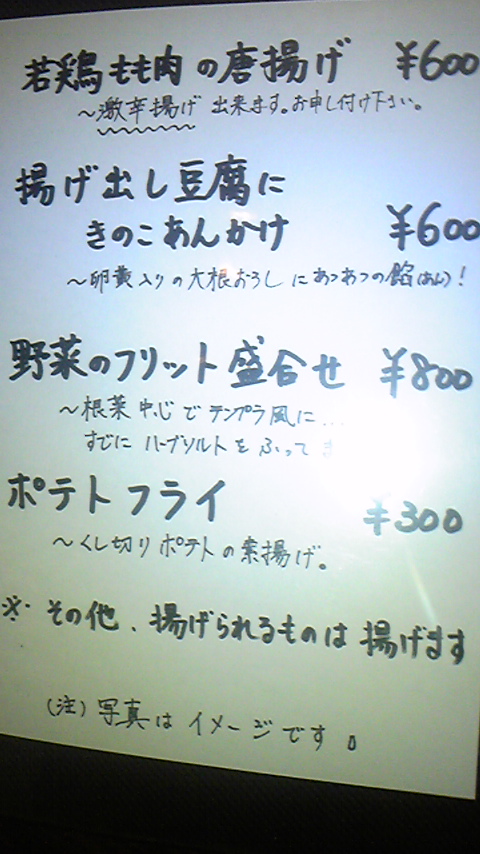 若鶏もも肉の唐揚げ ¥600
～激辛揚げ 出来ます。お申し付け下さい。
揚げ出し豆腐に
きのこあんかけ ¥600
～卵黄入りの大根おろしにあつあつの餡(あん)!
野菜のフリット盛合せ ¥800
～根菜中心でテンプラ風に...
すでにハーブソルトをふって
ポテトフライ ¥300
～くし切りポテトの素揚げ。
※ その他、揚げられるものは揚げます
(注)写真はイメージです。